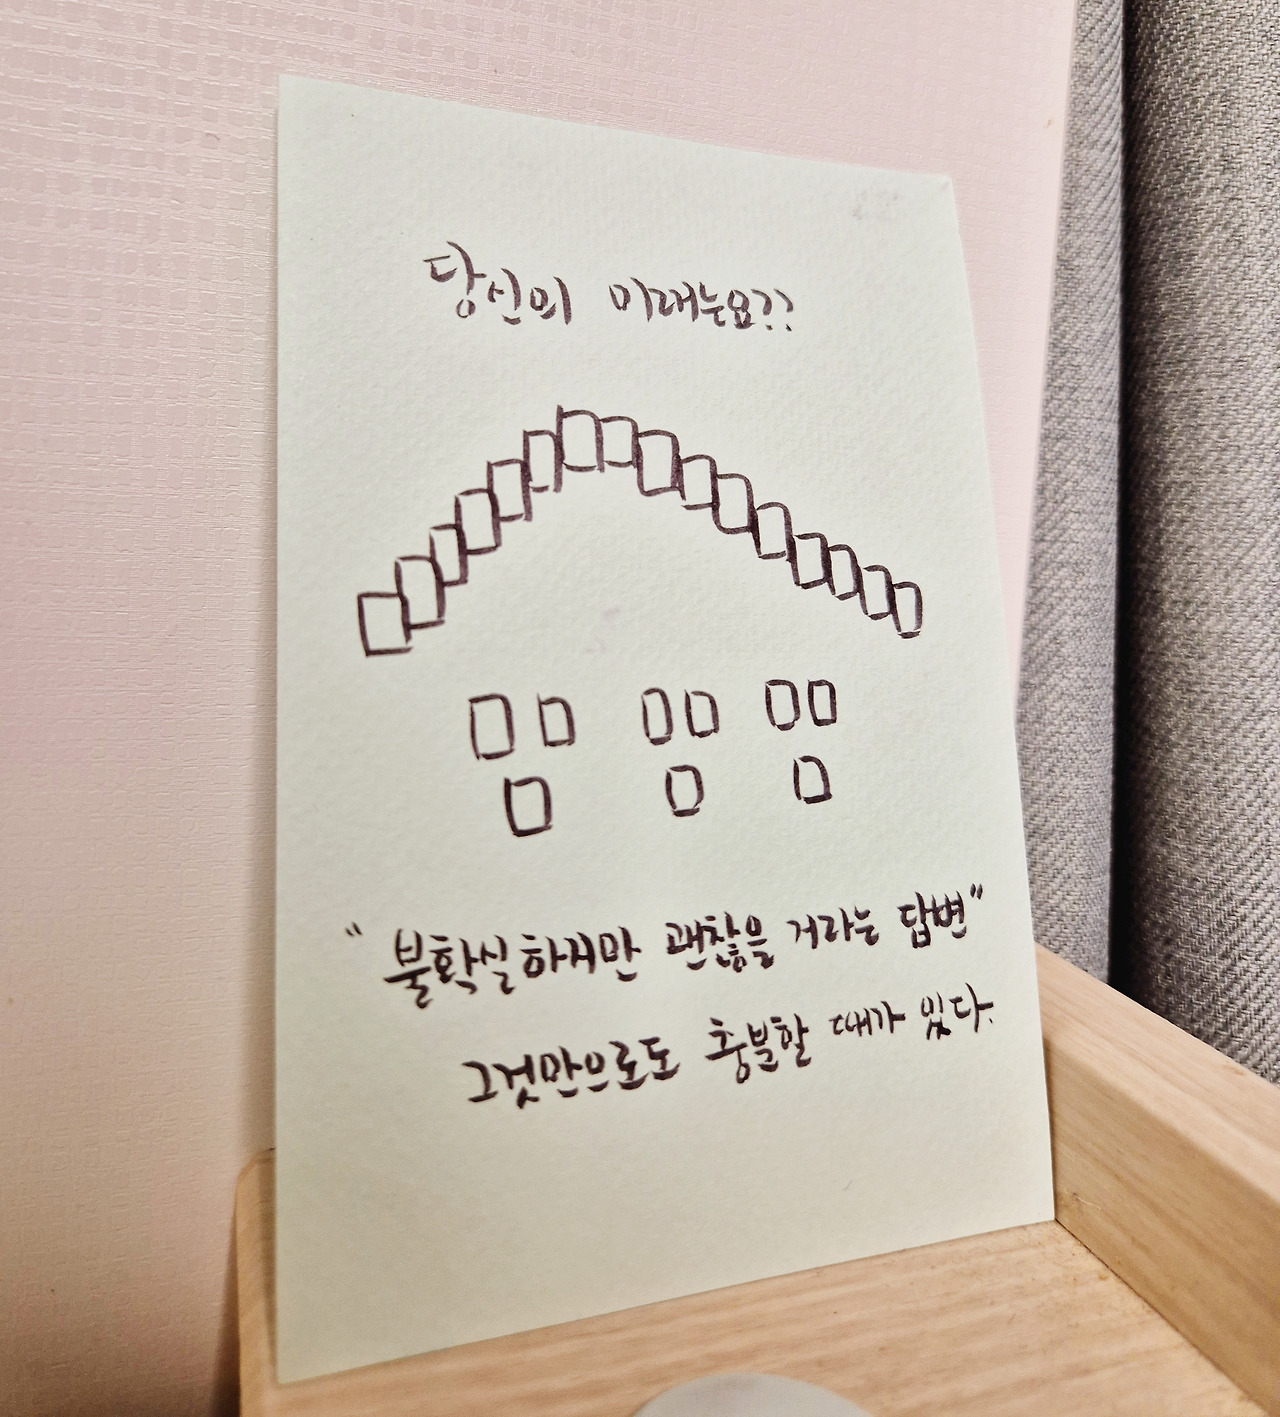 당신의 미래는요??
“불확실하지만 괜찮을 거라는 답변”
그것만으로도 충분할 때가 있다.